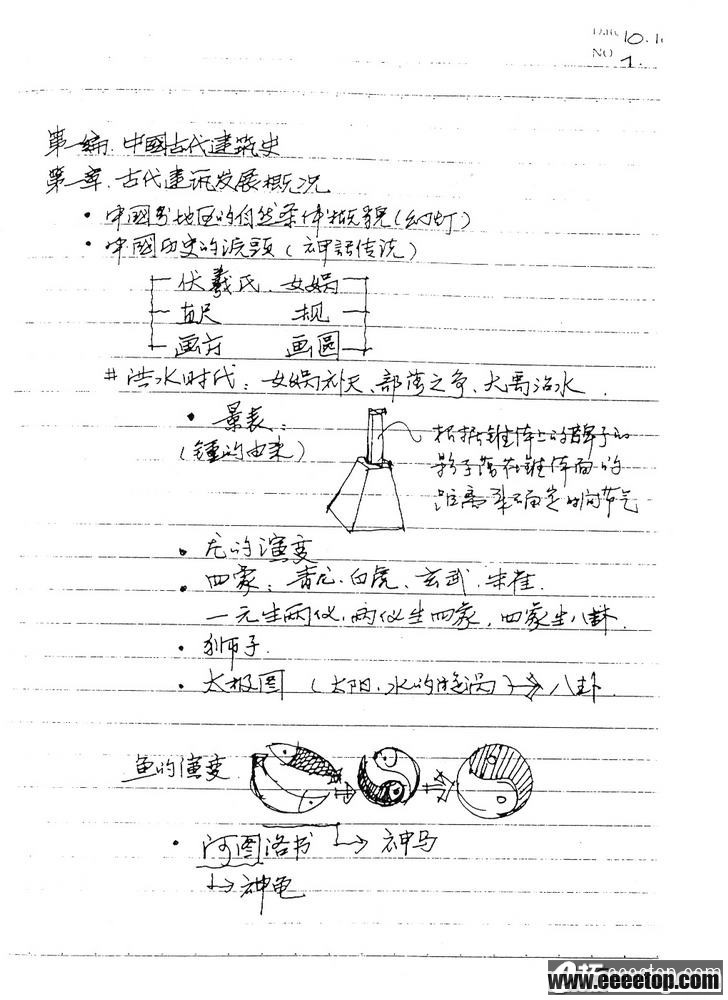 DATE 10.1
NO 1.
第一编. 中國古代建筑史
第一章. 古代建筑发展概况
• 中國各地区的自然条件概貌(幻灯)
• 中國历史的源頭(神話传说)
伏羲氏. 女娲
直尺 规
画方 画圆
# 洪水时代: 女娲补天、部落之争、大禹治水.
• 景表:
(锺的由来)
根据锥体上的辟子的
影子落在锥体面的
距离来确定时间节气
• 龙的演变
• 四象: 青龙. 白虎、玄武. 朱雀.
一元生两仪. 两仪生四象, 四象生八卦.
• 狮子.
• 太极图 (太阳. 水的旋涡) → 八卦.
鱼的演变
• 河图洛书 → 神马
→ 神龟
www.eeeetop.com